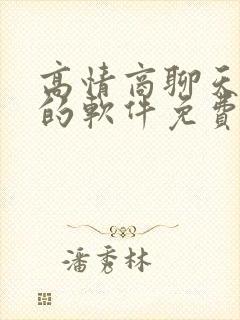 高情商聊天
的軟件免費
潘秀林